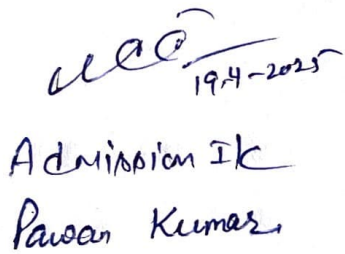 19.4-2025
Admission I/C
Pawan Kumar